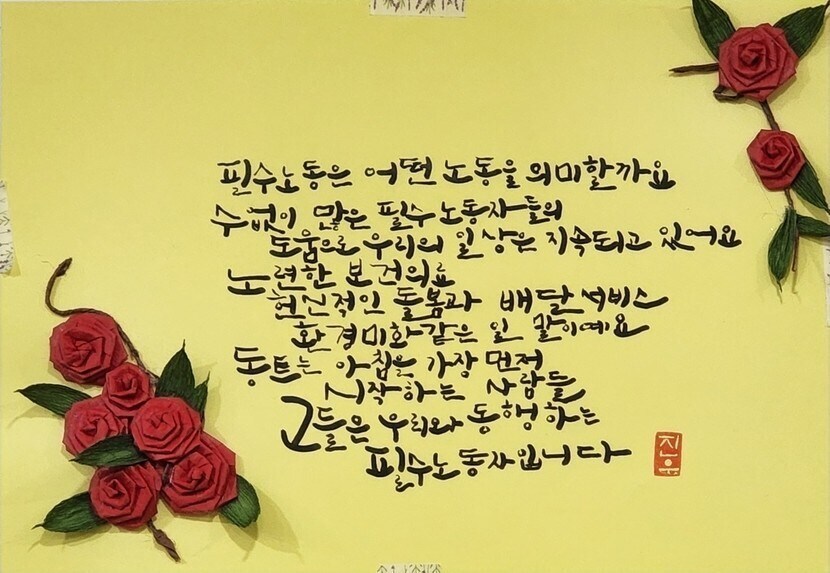 필수노동은 어떤 노동을 의미할까요
수없이 많은 필수노동자들의
도움으로 우리의 일상은 지속되고 있어요
노련한 보건의료
헌신적인 돌봄과 배달서비스
환경미화같은 일 말이예요
동트는 아침을 가장 먼저
시작하는 사람들
그들은 우리와 동행하는
필수노동자입니다